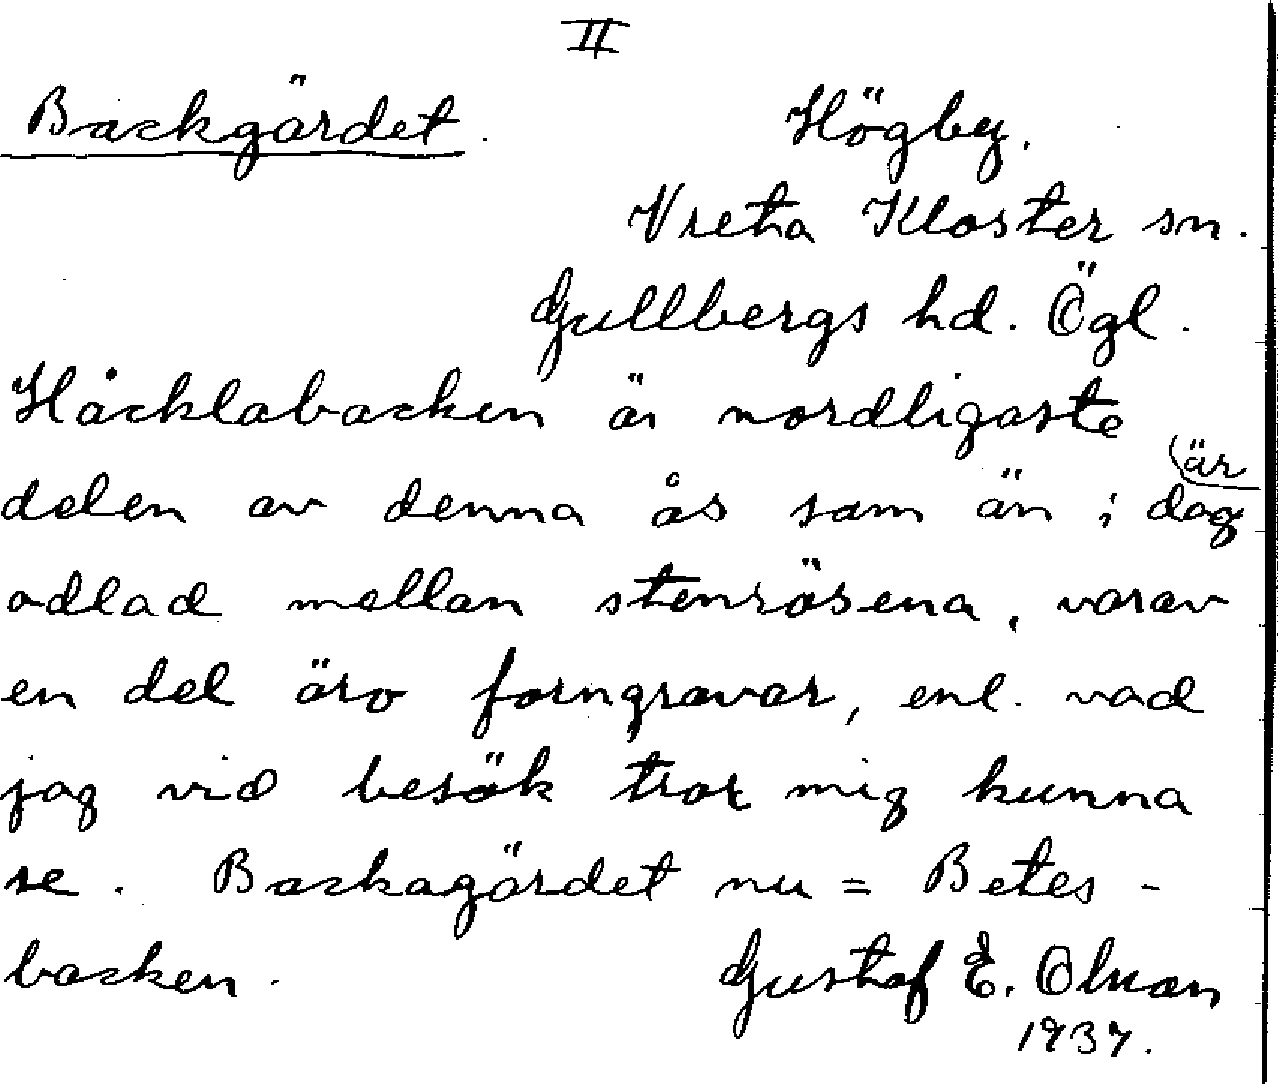 II
Backgärdet. Högby.
Vreta Kloster sn.
Gullbergs hd. Ögl.
Håcklabacken är nordligaste
delen av denna ås som än i dag (är
odlad mellan stenrösena, varav
en del äro forngravar, enl. vad
jag vid besök tror mig kunna
se. Backagärdet nu = Betes-
backen. Gustaf E.
1937.